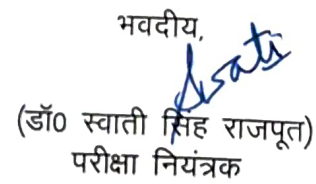 भवदीय,
Swati
(डॉ0 स्वाती सिंह राजपूत)
परीक्षा नियंत्रक